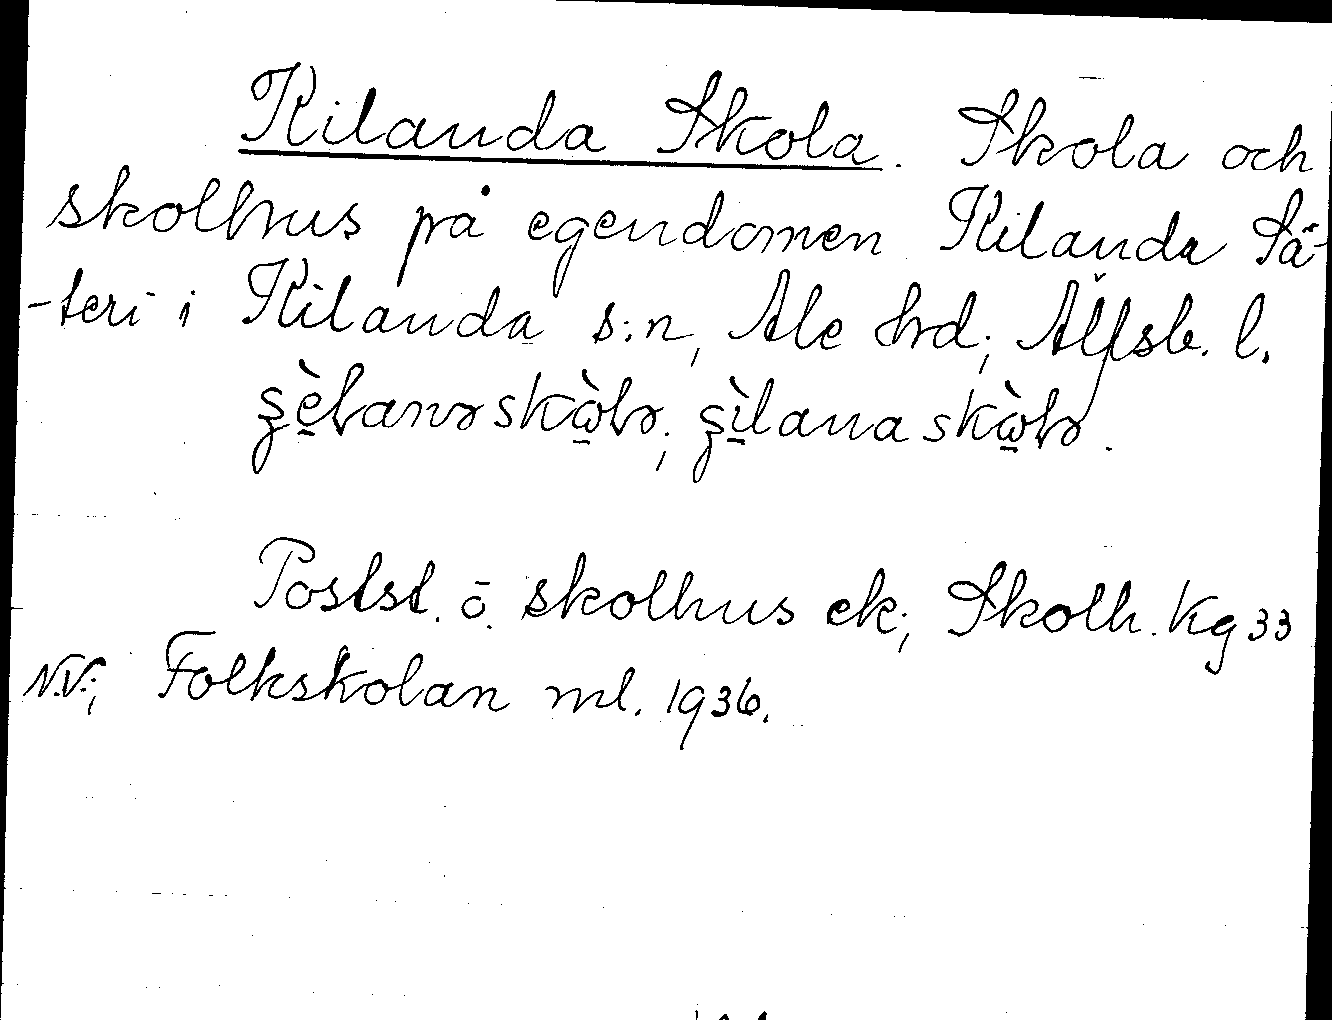 Kilanda Skola. Skola och
skolhus på egendomen Kilanda Sä-
-teri i Kilanda s:n, Ale hrd; Älfsb. l.
Postst. o. skolhus ek; Skolh. Kg 33
N.V.; Folkskolan ml. 1936.